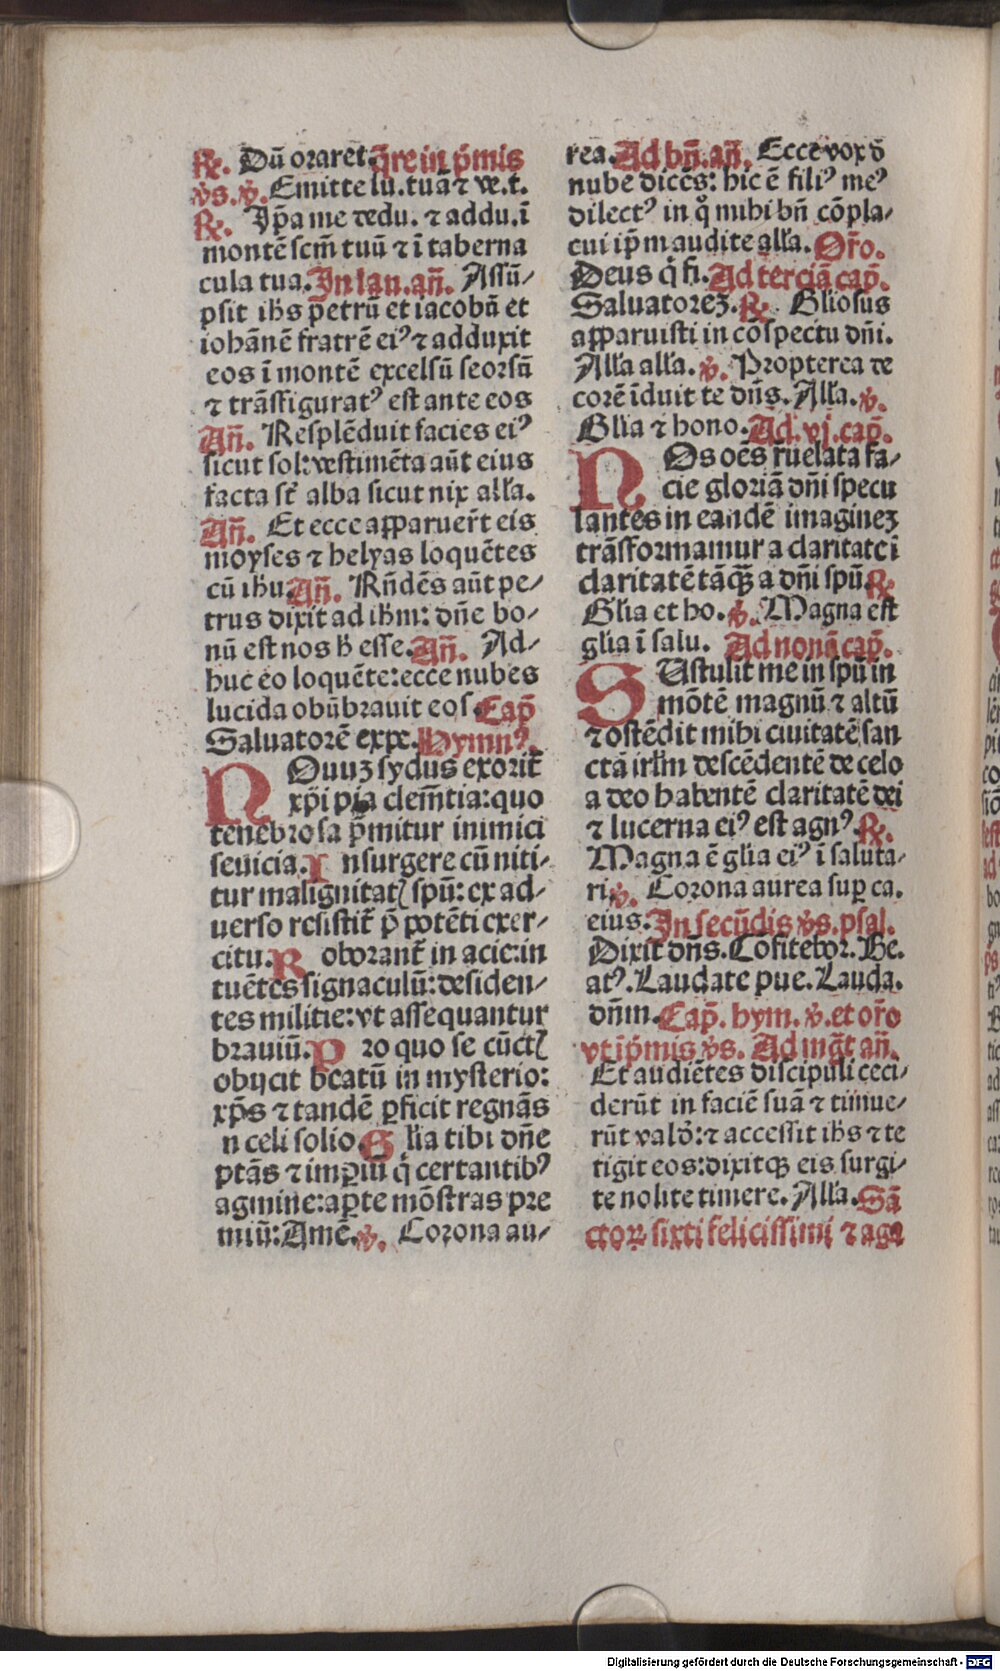 ℟. Dū oraret̄ q̄re in p̄mis
v̄s. ℣. Emitte lu. tuā ⁊ ve. t.
℟. Ip̄a me dedu. ⁊ addu. ī
montē scm̄ tuū ⁊ ī taberna
cula tua. In lau. an̄. Assū⸗
psit ihs petrū et iacobū et
iohānē fratrē eiꝰ ⁊ adduxit
eos ī montē excelsū seorsū
⁊ trāsfiguratꝰ est ante eos
An̄. Resplēduit facies eiꝰ
sicut sol: vestimēta aūt eius
facta st̄ alba sicut nix all'a.
An̄. Et ecce apparuer̄t eis
moyses ⁊ helyas loquētes
cū ihu An̄. Rn̄dēs aūt pe⸗
trus dixit ad ihm: dn̄e bo⸗
nū est nos h̄ esse. An̄. Ad⸗
huc eo loquēte: ecce nubes
lucida obūbrauit eos. Cap̄
Saluatorē expe. Hymnꝰ.
NOuuꝫ sydus exorit̄
xp̄i pia clem̄tia: quo
tenebrosa p̄mitur inimici
seuicia. Insurgere cū niti⸗
tur malignitatꝭ spū: ex ad⸗
uerso resistit̄ p̄ potēti exer⸗
citu. Roborant̄ in acie: in
tuētes signaculū: desiden⸗
tes militie: vt assequantur
brauiū. Pro quo se cūctꝭ
obijcit bcatū in mysterio:
xp̄s ⁊ tandē ꝑficit regnās
n celi solio. Glia tibi dn̄e
ptās ⁊ imꝑiū q̇ certantibꝰ
agmine: aꝑte mōstras pre
miū: Amē. ℣. Corona au⸗
rea. Ad bn̄. an̄. Ecce vox ď
nube dicēs: hic ē filiꝰ meꝰ
dilectꝰ in q̊ mihi bn̄ cōpla⸗
cui ip̄m audite all'a. Or̄o.
Deus q̇ fi. Ad terciā cap̄.
Saluatoreꝫ. ℟. Gliosus
apparuisti in cōspectu dn̄i.
All'a all'a. ℣. Propterea de
corē īduit te dn̄s. All'a. ℣.
Glia ⁊ hono. Ad. vj. cap̄.
NOs oēs r̄uelata fa⸗
cie gloriā dn̄i specu
lantes in eandē imagineꝫ
trāsformamur a claritate ī
claritatē tāꝙꝫ a dn̄i spū. ℟.
Glia et ho. ℣. Magna est
glia ī salu. Ad nonā cap̄.
SUstulit me in spū in
mōtē magnū ⁊ altū
⁊ ostēdit mihi ciuitatē san
ctā irl'm descēdentē de celo
a deo habentē claritatē dei
⁊ lucerna eiꝰ est agnꝰ. ℟.
Magna ē glia eiꝰ ī saluta⸗
ri ℣. Corona aurea suꝑ ca.
eius. In secūdis v̄s. psal.
Dixit dn̄s. Cōfitebor. Be.
atꝰ. Laudate pue. Lauda.
dn̄m. Cap̄. hym. ℣. et or̄o
vt ip̄mis v̄s. Ad mḡt an̄.
Et audiētes discipuli ceci⸗
derūt in faciē suā ⁊ timue⸗
rūt valď: ⁊ accessit ihs ⁊ te
tigit eos: dixitqꝫ eis surgi⸗
te nolite timere. All'a. Sā
ctoꝝ sixti felicissimi ⁊ aga
Digitalisierung gefördert durch die Deutsche Forschungsgemeinschaft - DFG